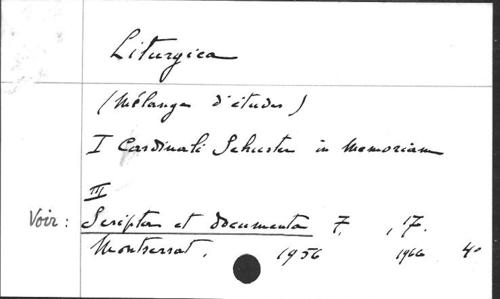 Liturgica
(Mélanges d'études)
I Cardinali Schuster in memoriam
III
Voir : Scripta et documenta 7. , 17.
Montserrat. 1956 1966 4°